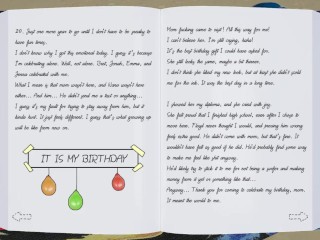 20. Just one more year to go until I don't have to be sneaky to
have fun beers.
I don't know why I got this emotional today. I guess it's because
I'm celebrating alone. Well, not alone. Dad, Jonah, Emma, and
Jenna celebrated with me.
What I mean is that mom wasn't here, and Klaus wasn't here
either... And him... He didn't send me a text or anything...
I guess it's my fault for trying to stay away from him, but it
kinda hurt. It just feels different. I guess that's what growing up
will be like from now on.
IT IS MY BIRTHDAY
Mom fucking came to visit! All this way for me!
I can't believe her. I'm still crying, haha!
It's the best birthday gift I could have asked for.
She still looks the same, maybe a bit thinner.
I don't think she liked my new look, but at least she didn't scold
me for the ink. It was the best day in a long time.
I showed her my diploma, and she cried with joy.
She felt proud that I finished high school, even after I chose to
move here. Floyd never thought I would, and proving him wrong
feels extra good. He didn't come with mom, but that's fine. It
wouldn't have felt as good if he did. He'd probably find some way
to make me feel like shit anyway.
He'd likely try to pick it to me for not being a surfer and making
money from it yet or something like that...
Anyway... Thank you for coming to celebrate my birthday, mom.
It meant the world to me.